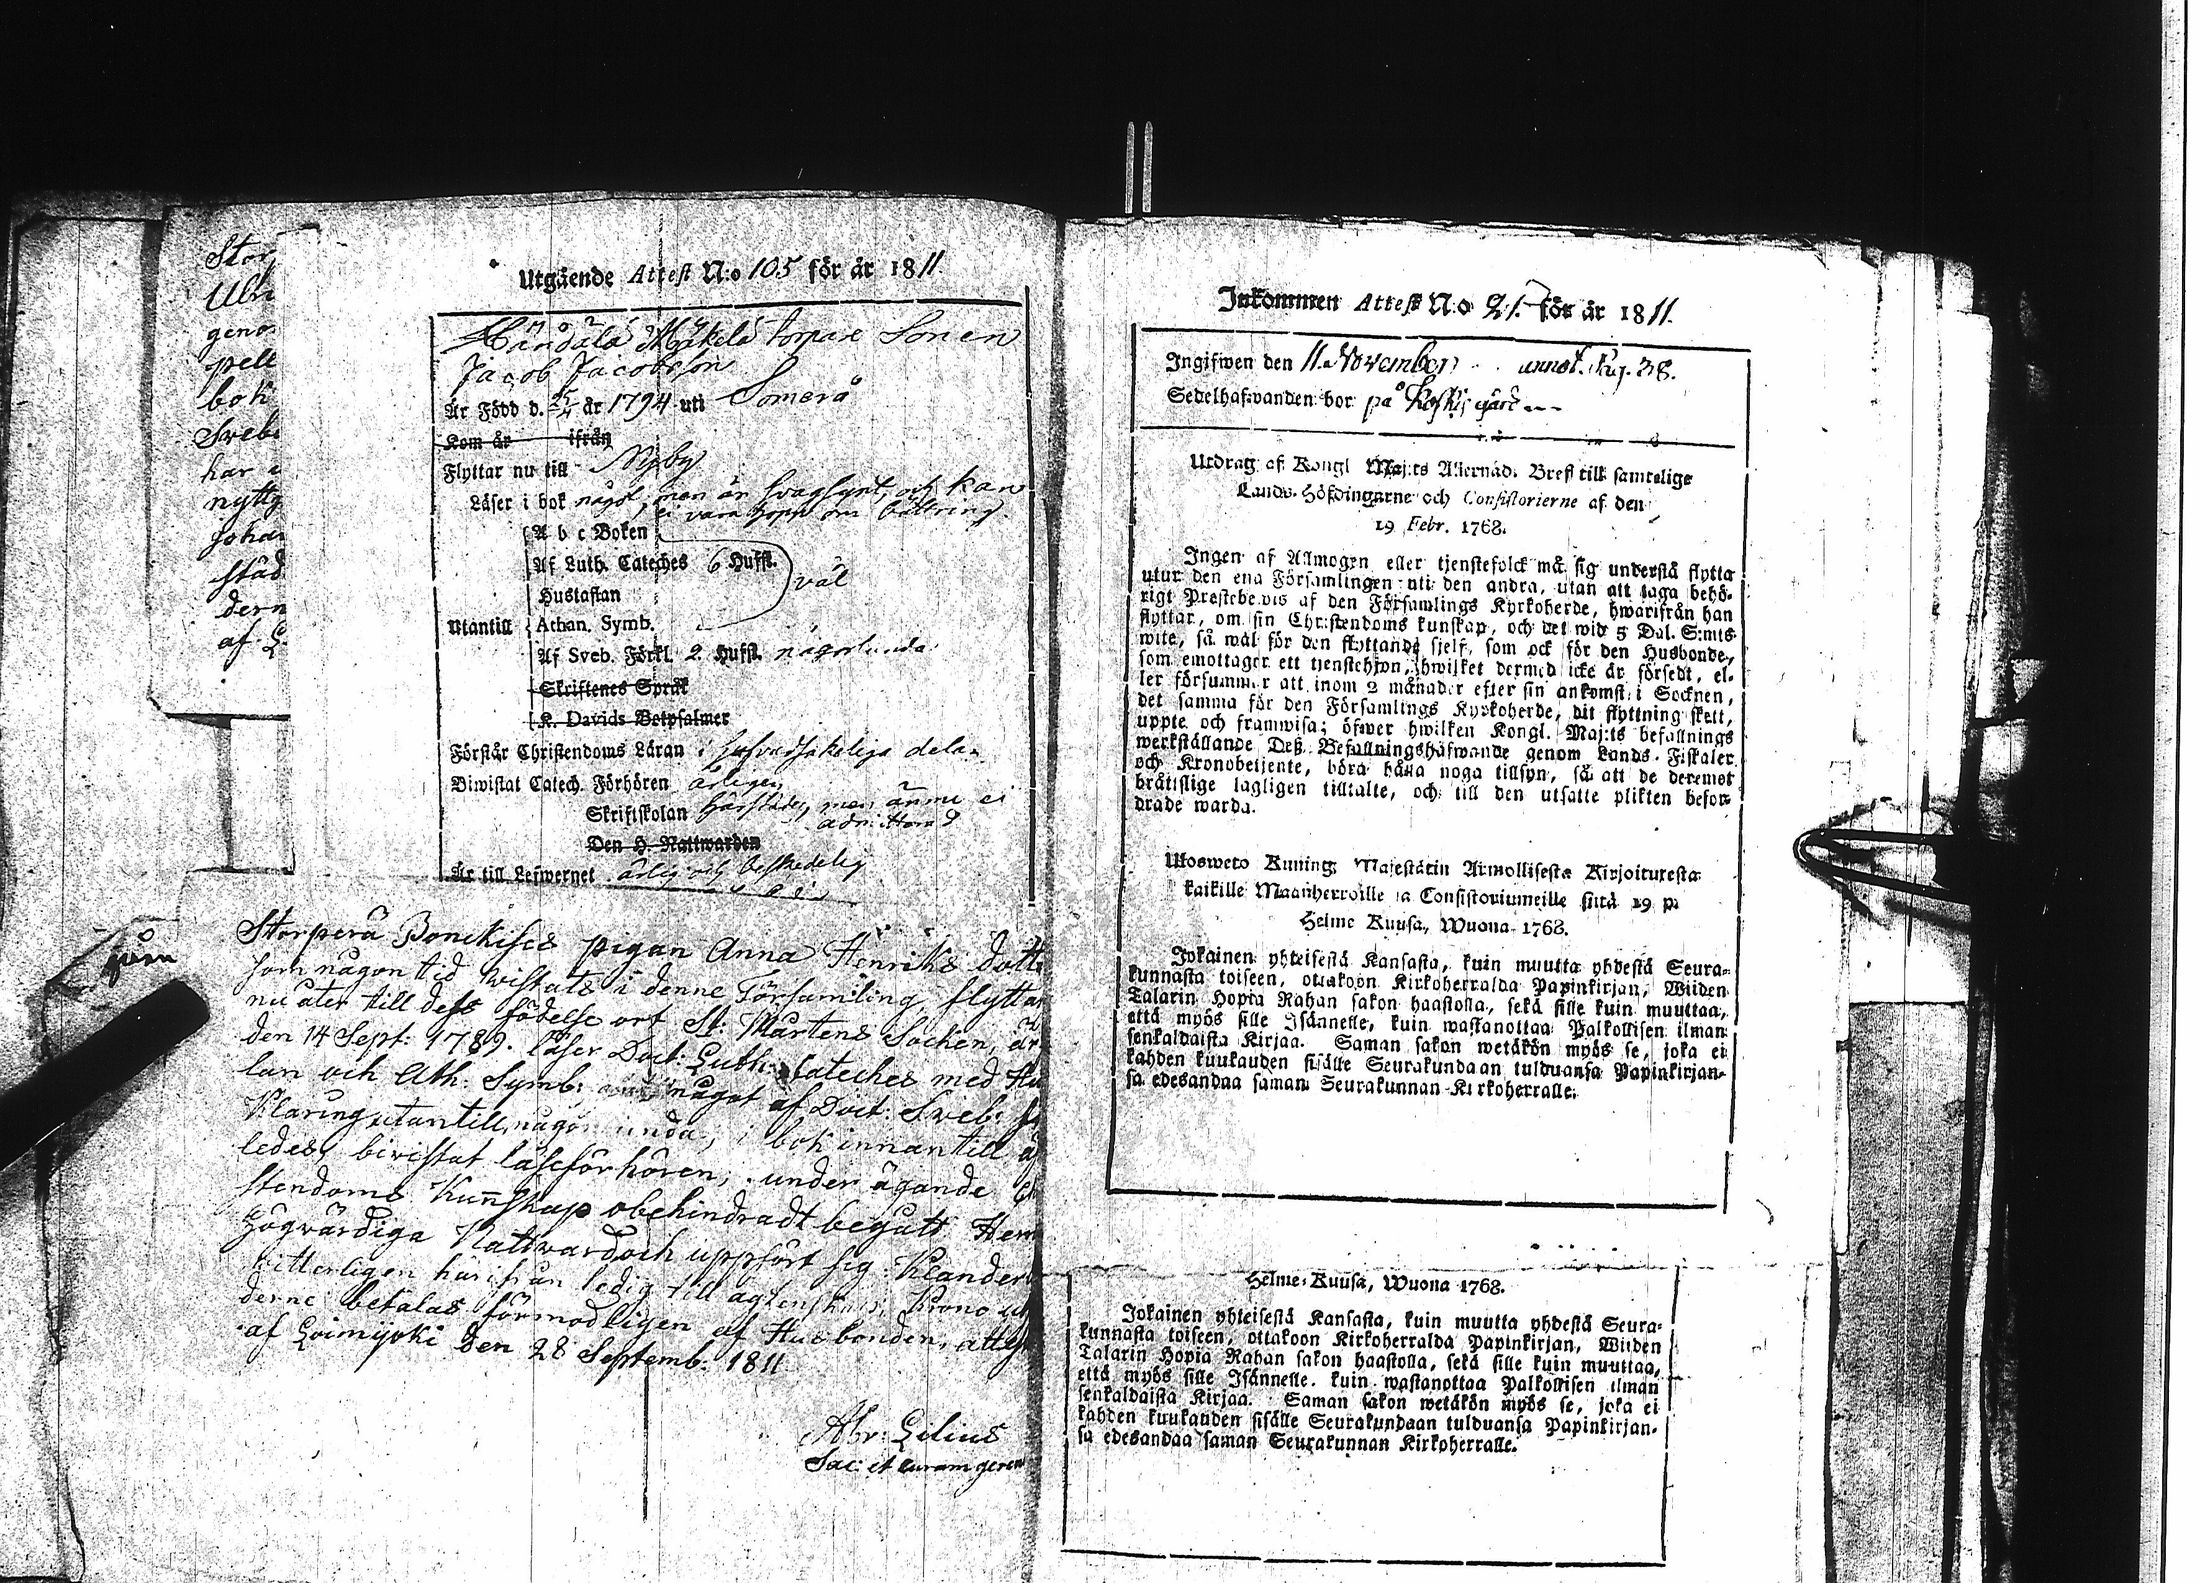 Stor
Ulri
geno
pell
bok
Sveb
har
nyttj
johan
städ
dern
af L
Utgående Attest N:o 105 för år 1811.
Händälä Mäkelä torpare Sonen
Jacob Jacobsson
Är Född d. 25/4 år 1794 uti Somerå
Kom år ifrån
Flyttar nu till Nyby
Läser i bok något, men är svagsynt, och kan
ei vara hopp om bättring
A b c Boken
Af Luth. Cateches 6 Hufst.
Hustaflan
väl
Utantill Athan. Symb.
Af Sveb. Förkl. 2 Hufst. någorlunda
Skriftenes Språk
K. Davids Botpsalmer
Förstår Christendoms Läran i hufvudsakeliga delar
Biwistat Catech. Förhören årligen
Skriftskolan härstädes, men ännu ei
admitterad
Den H. Nattwarden
Är till Lefwernet ärlig och beskedelig
Storperä Bonckises pigan Anna Henriks dott
som någon tid vistats i denne Församling, flyttar
nu åter till dess födelse ort St: Mårtens Sochen, är
den 14 Sept: 1789. läser Doct: Luth: Cateches med Hu
lan och Ath: Symb: något af Doct: Sveb:
klaring utantill, någorlunda, i bok innantill
ledes, bivistat läseförhören, under ägande
stendoms Kunskap obehindradt begått Hem
högvärdiga Nattvard och uppfört sig Klander
vitterligen härifrån ledig till ägtenskap, Krono ut
derne betalas förmodligen af Husbonden, attest
af Loimijoki den 28 Septemb: 1811
Abr: Lilius
Sac: et curam geren
Inkommen Attest N:o 21. för år 1811.
Ingifwen den 11. November annot. pag. 38.
Sedelhafwanden bor på Koskis gård
Utdrag af Kongl Maj:ts Allernåd. Bref till samtelige
Lands-Höfdingarne och Consistorierne af den
19 Febr. 1768.
Ingen af Allmogen eller tjenstefolck må sig understå flytta
utur den ena Församlingen uti den andra, utan att taga behö-
rigt Prestebevis af den Församlings Kyrkoherde, hwarifrån han
flyttar, om sin Christendoms kunskap, och det wid 5 Dal. S:mts
wite, så wäl för den flyttande sjelf, som ock för den Husbonde,
som emottager ett tjenstehjon, hwilket dermed icke är försedt, el-
ler försummer att inom 2 månader efter sin ankomst i Socknen,
det samma för den Församlings Kyrkoherde, dit flyttning skett,
uppte och framwisa; öfwer hwilken Kongl. Maj:ts befallnings
werkställande Deß Befallningshafwande genom Lands-Fiskaler
och Kronobetjente, böra hålla noga tillsyn, så att de deremot
bråtislige lagligen tilltalte, och till den utsatte plikten befor-
drade warda.
Ulosweto Kuning. Majestätin Armollisesta Kirjoituxesta
kaikille Maanherroille ja Consistoriumeille siitä 19 p.
Helme Kuusa, Wuona 1768.
Jokainen yhteisestä Kansasta, kuin muutta yhdestä Seura-
kunnasta toiseen, ottakoon Kirkoherralda Papinkirjan, Wiiden
Talarin Hopia Rahan sakon haastolla, sekä sille kuin muuttaa,
että myös sille Isännelle, kuin wastanottaa Palkollisen ilman
senkaldaista Kirjaa. Saman sakon wetäkön myös se, joka ei
kahden kuukauden sisälle Seurakundaan tulduansa Papinkirjan-
sa edesandaa saman Seurakunnan Kirkoherralle.
Helme-Kuusa, Wuona 1768.
Jokainen yhteisestä Kansasta, kuin muutta yhdestä Seura-
kunnasta toiseen, ottakoon Kirkoherralda Papinkirjan, Wiiden
Talarin Hopia Rahan sakon haastolla, sekä sille kuin muuttaa,
että myös sille Isännelle, kuin wastanottaa Palkollisen ilman
senkaldaista Kirjaa. Saman sakon wetäkön myös se, joka ei
kahden kuukauden sisälle Seurakundaan tulduansa Papinkirjan-
sa edesandaa saman Seurakunnan Kirkoherralle.